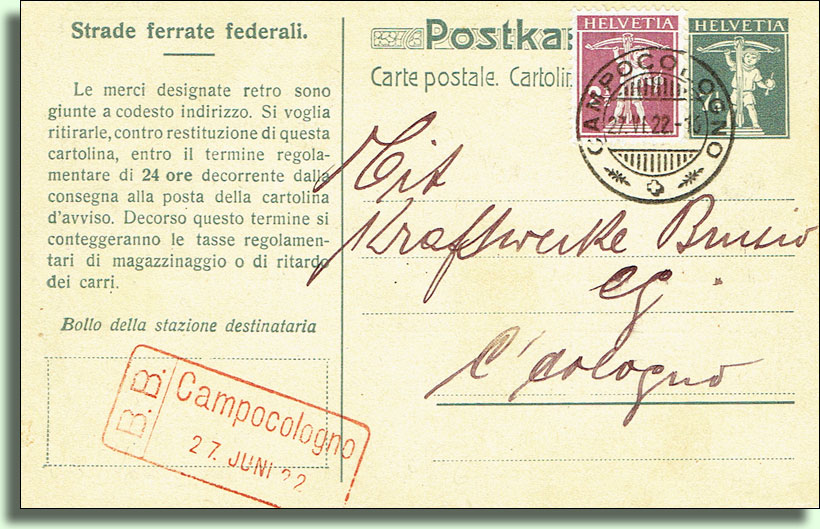 Strade ferrate federali.
Le merci designate retro sono
giunte a codesto indirizzo. Si voglia
ritirarle, contro restituzione di questa
cartolina, entro il termine regola-
mentare di 24 ore decorrente dalla
consegna alla posta della cartolina
d'avviso. Decorso questo termine si
conteggeranno le tasse regolamen-
tari di magazzinaggio o di ritardo
dei carri.
Bollo della stazione destinataria
B. B.
Campocologno
27. JUNI 22
Postka
Carte postale. Cartolin
HELVETIA
HELVETIA
CAMPOCOLOGNO
27.VI.22.-
Tit
Kraftwerke Brusio
C'cologno